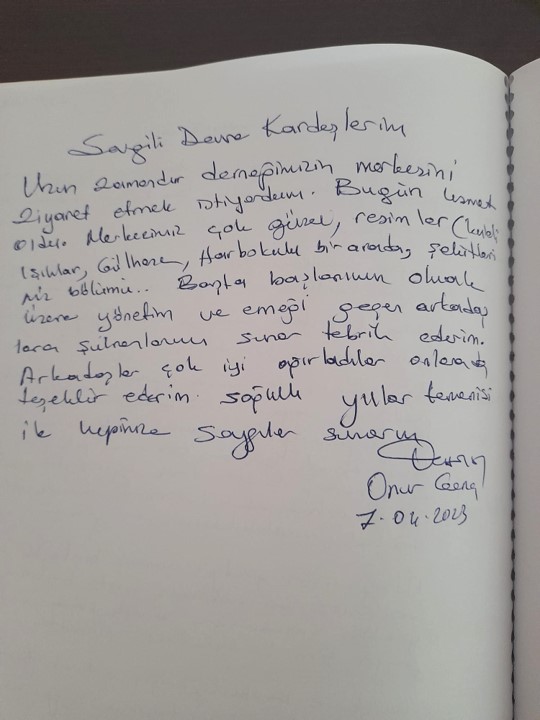 Sevgili Devre Kardeşlerim
Uzun zamandır derneğimizin merkezini
ziyaret etmek istiyordum. Bugün kısmet
oldu. Merkezimiz çok güzel, resimler (
Işıklar, Gülhane, Harbokulu bir arada, şehitleri
miz bölümü.. Başta başkanım olmak
üzere yönetim ve emeği geçen arkadaş
lara şükranlarımı sunar tebrik ederim.
Arkadaşlar çok iyi ağırladılar onlarada
teşekkür ederim. Sağlıklı yıllar temenisi
ile hepinize saygılar sunarım
Onur
7.04.2023